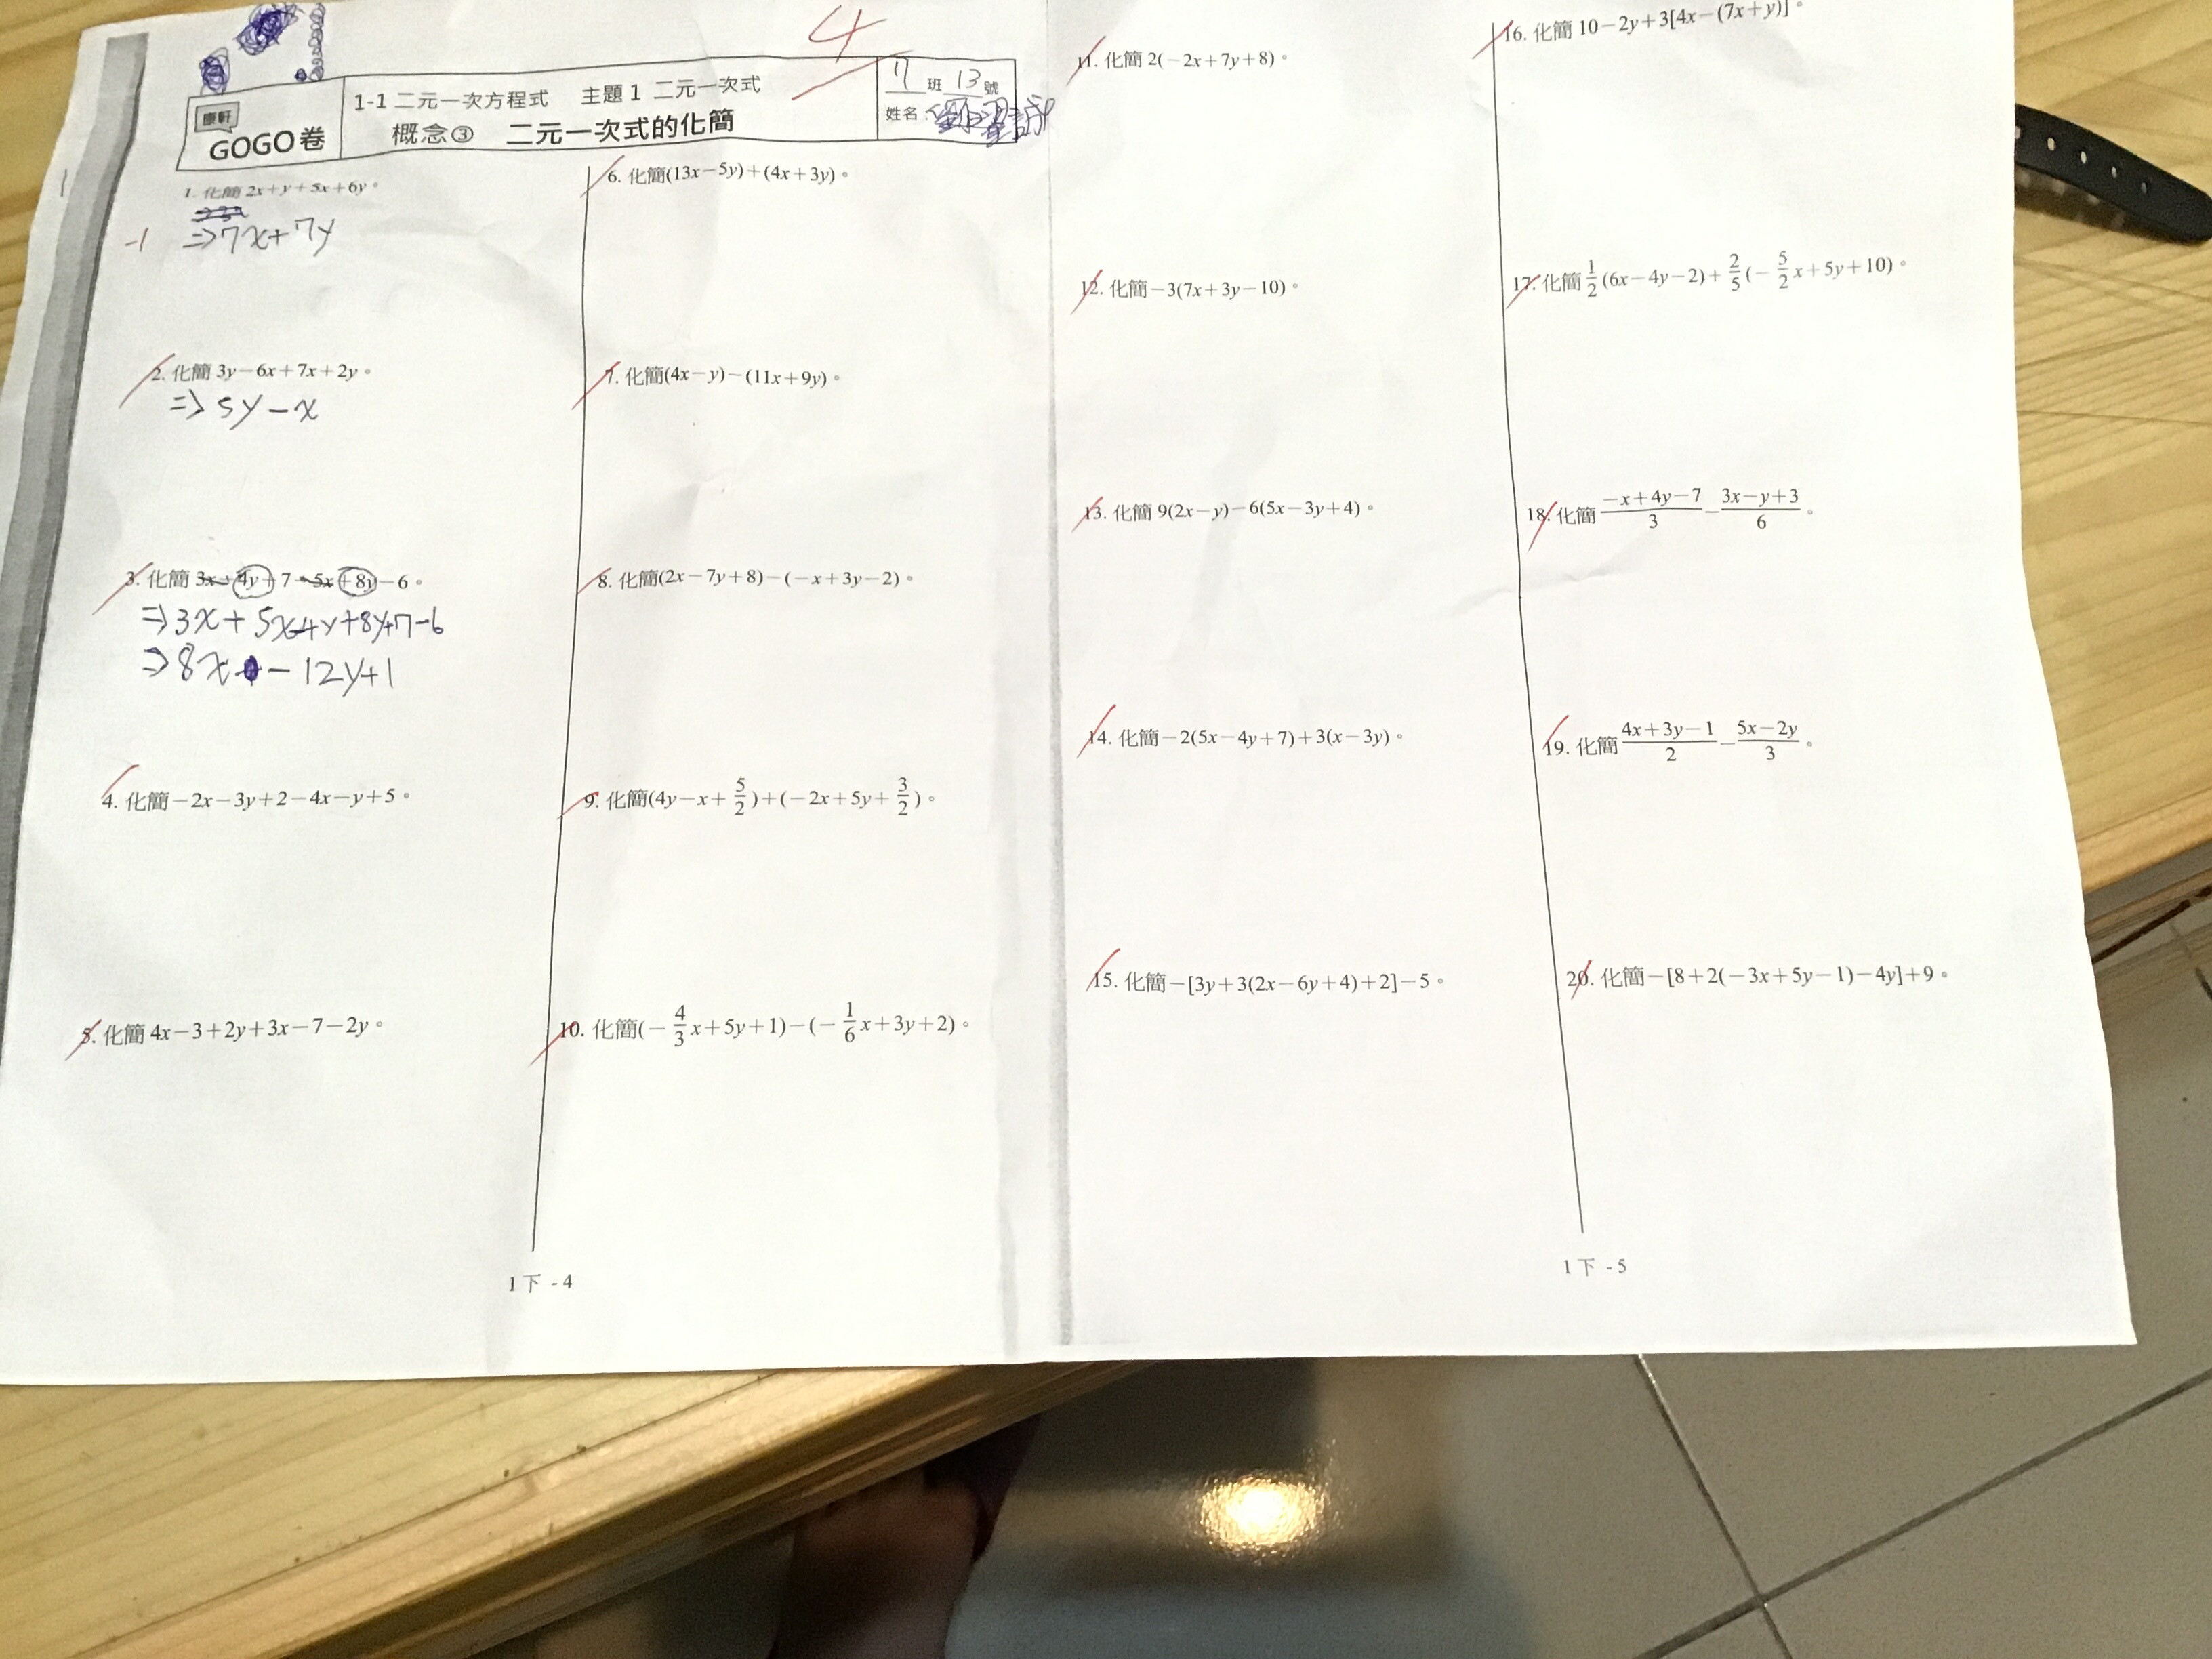 4
康軒
GOGO卷
1-1 二元一次方程式 主題 1 二元一次式
概念③ 二元一次式的化簡
班 13 號
姓名:
1. 化簡 2x+y+5x+6y。
-1 ⇒7x+7y
2. 化簡 3y-6x+7x+2y。
⇒ 5y-x
3. 化簡 3x-4y+7-5x+8y-6。
⇒3x+5x-4y+8y+7-6
⇒8x-12y+1
4. 化簡-2x-3y+2-4x-y+5。
5. 化簡 4x-3+2y+3x-7-2y。
6. 化簡(13x-5y)+(4x+3y)。
7. 化簡(4x-y)-(11x+9y)。
8. 化簡(2x-7y+8)-(-x+3y-2)。
9. 化簡(4y-x+5/2)+(-2x+5y+3/2)。
10. 化簡(-4/3x+5y+1)-(-1/6x+3y+2)。
1下 -4
11. 化簡 2(-2x+7y+8)。
12. 化簡-3(7x+3y-10)。
13. 化簡 9(2x-y)-6(5x-3y+4)。
14. 化簡-2(5x-4y+7)+3(x-3y)。
15. 化簡-[3y+3(2x-6y+4)+2]-5。
16. 化簡 10-2y+3[4x-(7x+y)]。
17. 化簡 1/2(6x-4y-2)+2/5(-5/2x+5y+10)。
18. 化簡 -x+4y-7/3-3x-y+3/6。
19. 化簡 4x+3y-1/2-5x-2y/3。
20. 化簡-[8+2(-3x+5y-1)-4y]+9。
1下 -5